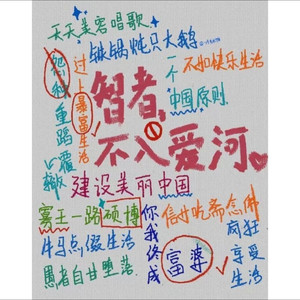 天天美容唱歌
铁锅炖只大鹅
怨种
重蹈覆辙
过上暴富生活
一个
不如快乐生活
中国原则
智者,
不入爱河
建设美丽中国
寡王一路硕博
你我终成
富婆
信女吃斋念佛
牛马点缀生活
愚者自甘堕落
疯狂享受生活